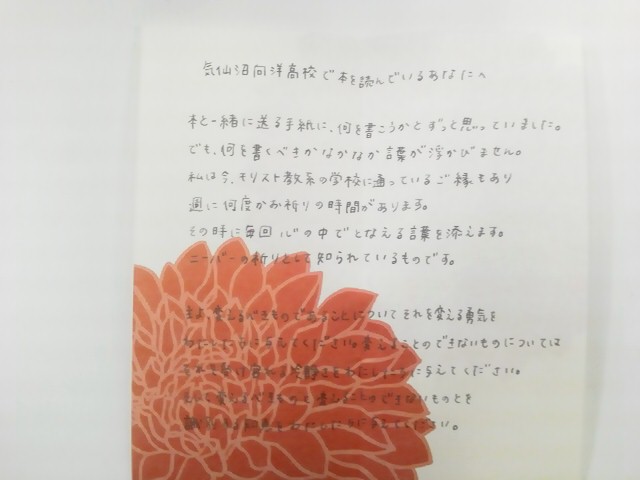 気仙沼向洋高校で本を読んでいるあなたへ
本と一緒に送る手紙に、何を書こうかとずっと思っていました。
でも、何を書くべきかなかなか言葉が浮かびません。
私は今、キリスト教系の学校に通っているご縁もあり
週に何度かお祈りの時間があります。
その時に毎回心の中でとなえる言葉を添えます。
ニーバーの祈りとして知られているものです。
主よ、変えるべきものであることについてそれを変える勇気を
わたしたちに与えてください。変えることのできないものについては
それを受け容れる冷静さをわたしたちに与えてください。
そして変えるべきものと変えることのできないものとを
識別する知恵をわたしたちに与えてください。